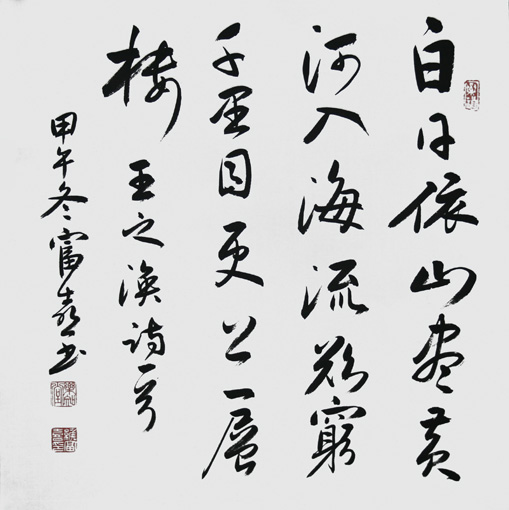 白日依山尽黄
河入海流欲穷
千里目更上一层
楼 王之涣诗一首
甲午冬富春书